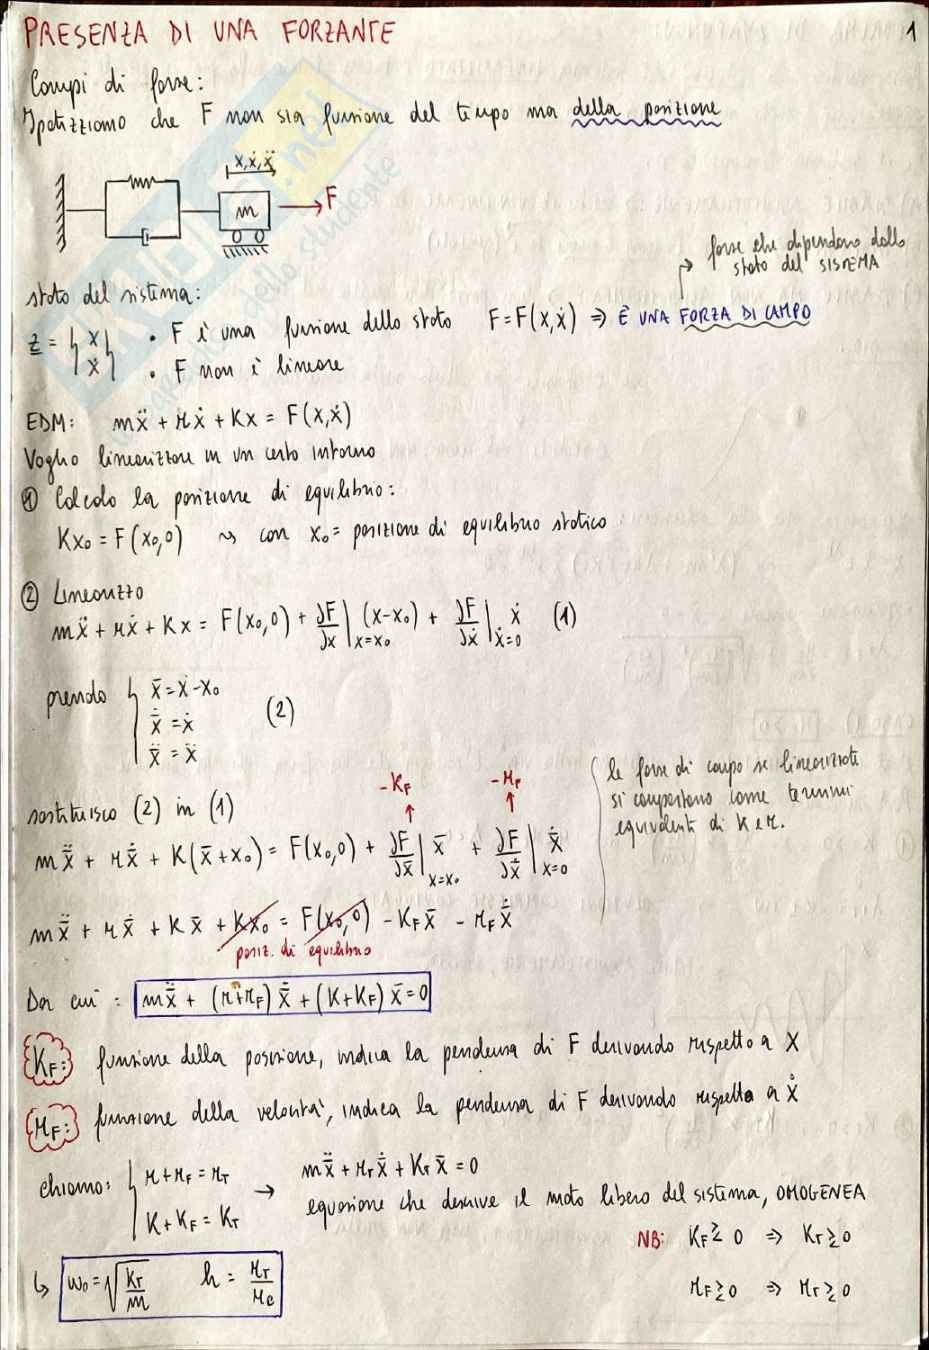 PRESENZA DI UNA FORZANTE
1
Campi di forze:
Ipotizziamo che F non sia funzione del tempo ma della posizione
x, ẋ, ẍ
m
F
forze che dipendono dallo
stato del SISTEMA
stato del sistema:
z = { x ẋ }
• F è una funzione dello stato F = F(x,ẋ) ⇒ È UNA FORZA DI CAMPO
• F non è lineare
EDM: mẍ + rẋ + Kx = F(x,ẋ)
Voglio linearizzare in un certo intorno
① Calcolo la posizione di equilibrio:
Kx₀ = F(x₀,0) ⇝ con x₀ = posizione di equilibrio statico
② Linearizzo
mẍ + rẋ + Kx = F(x₀,0) + ∂F/∂x |x=x₀ (x-x₀) + ∂F/∂ẋ |ẋ=0 ẋ (1)
prendo { x̄ = x - x₀
ẋ̄ = ẋ (2)
ẍ̄ = ẍ
sostituisco (2) in (1)
-K_F -r_F
m ẍ̄ + r ẋ̄ + K(x̄ + x₀) = F(x₀,0) + ∂F/∂x̄ |x=x₀ x̄ + ∂F/∂ẋ̄ |ẋ=0 ẋ̄
le forze di campo se linearizzate
si comportano come termini
equivalenti di K e r.
m ẍ̄ + r ẋ̄ + K x̄ + Kx₀ = F(x₀,0) - K_F x̄ - r_F ẋ̄
posiz. di equilibrio
Da cui: m ẍ̄ + (r+r_F) ẋ̄ + (K+K_F) x̄ = 0
K_F: funzione della posizione, indica la pendenza di F derivando rispetto a x
r_F: funzione della velocità, indica la pendenza di F derivando rispetto a ẋ
chiamo: { r + r_F = r_T
K + K_F = K_T
→ m ẍ̄ + r_T ẋ̄ + K_T x̄ = 0
equazione che descrive il moto libero del sistema, OMOGENEA
NB: K_F ≷ 0 ⇒ K_T ≷ 0
r_F ≷ 0 ⇒ r_T ≷ 0
↳ ω₀ = √(K_T/m) h = r_T/r_c